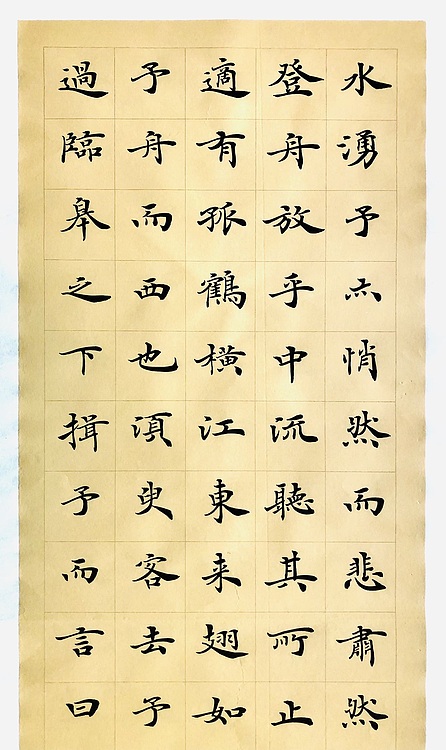 水湧予亦悄然而悲肅然
登舟放乎中流聽其所止
適有孤鶴橫江東来翅如
予舟而西也須臾客去予
過臨皋之下揖予而言曰